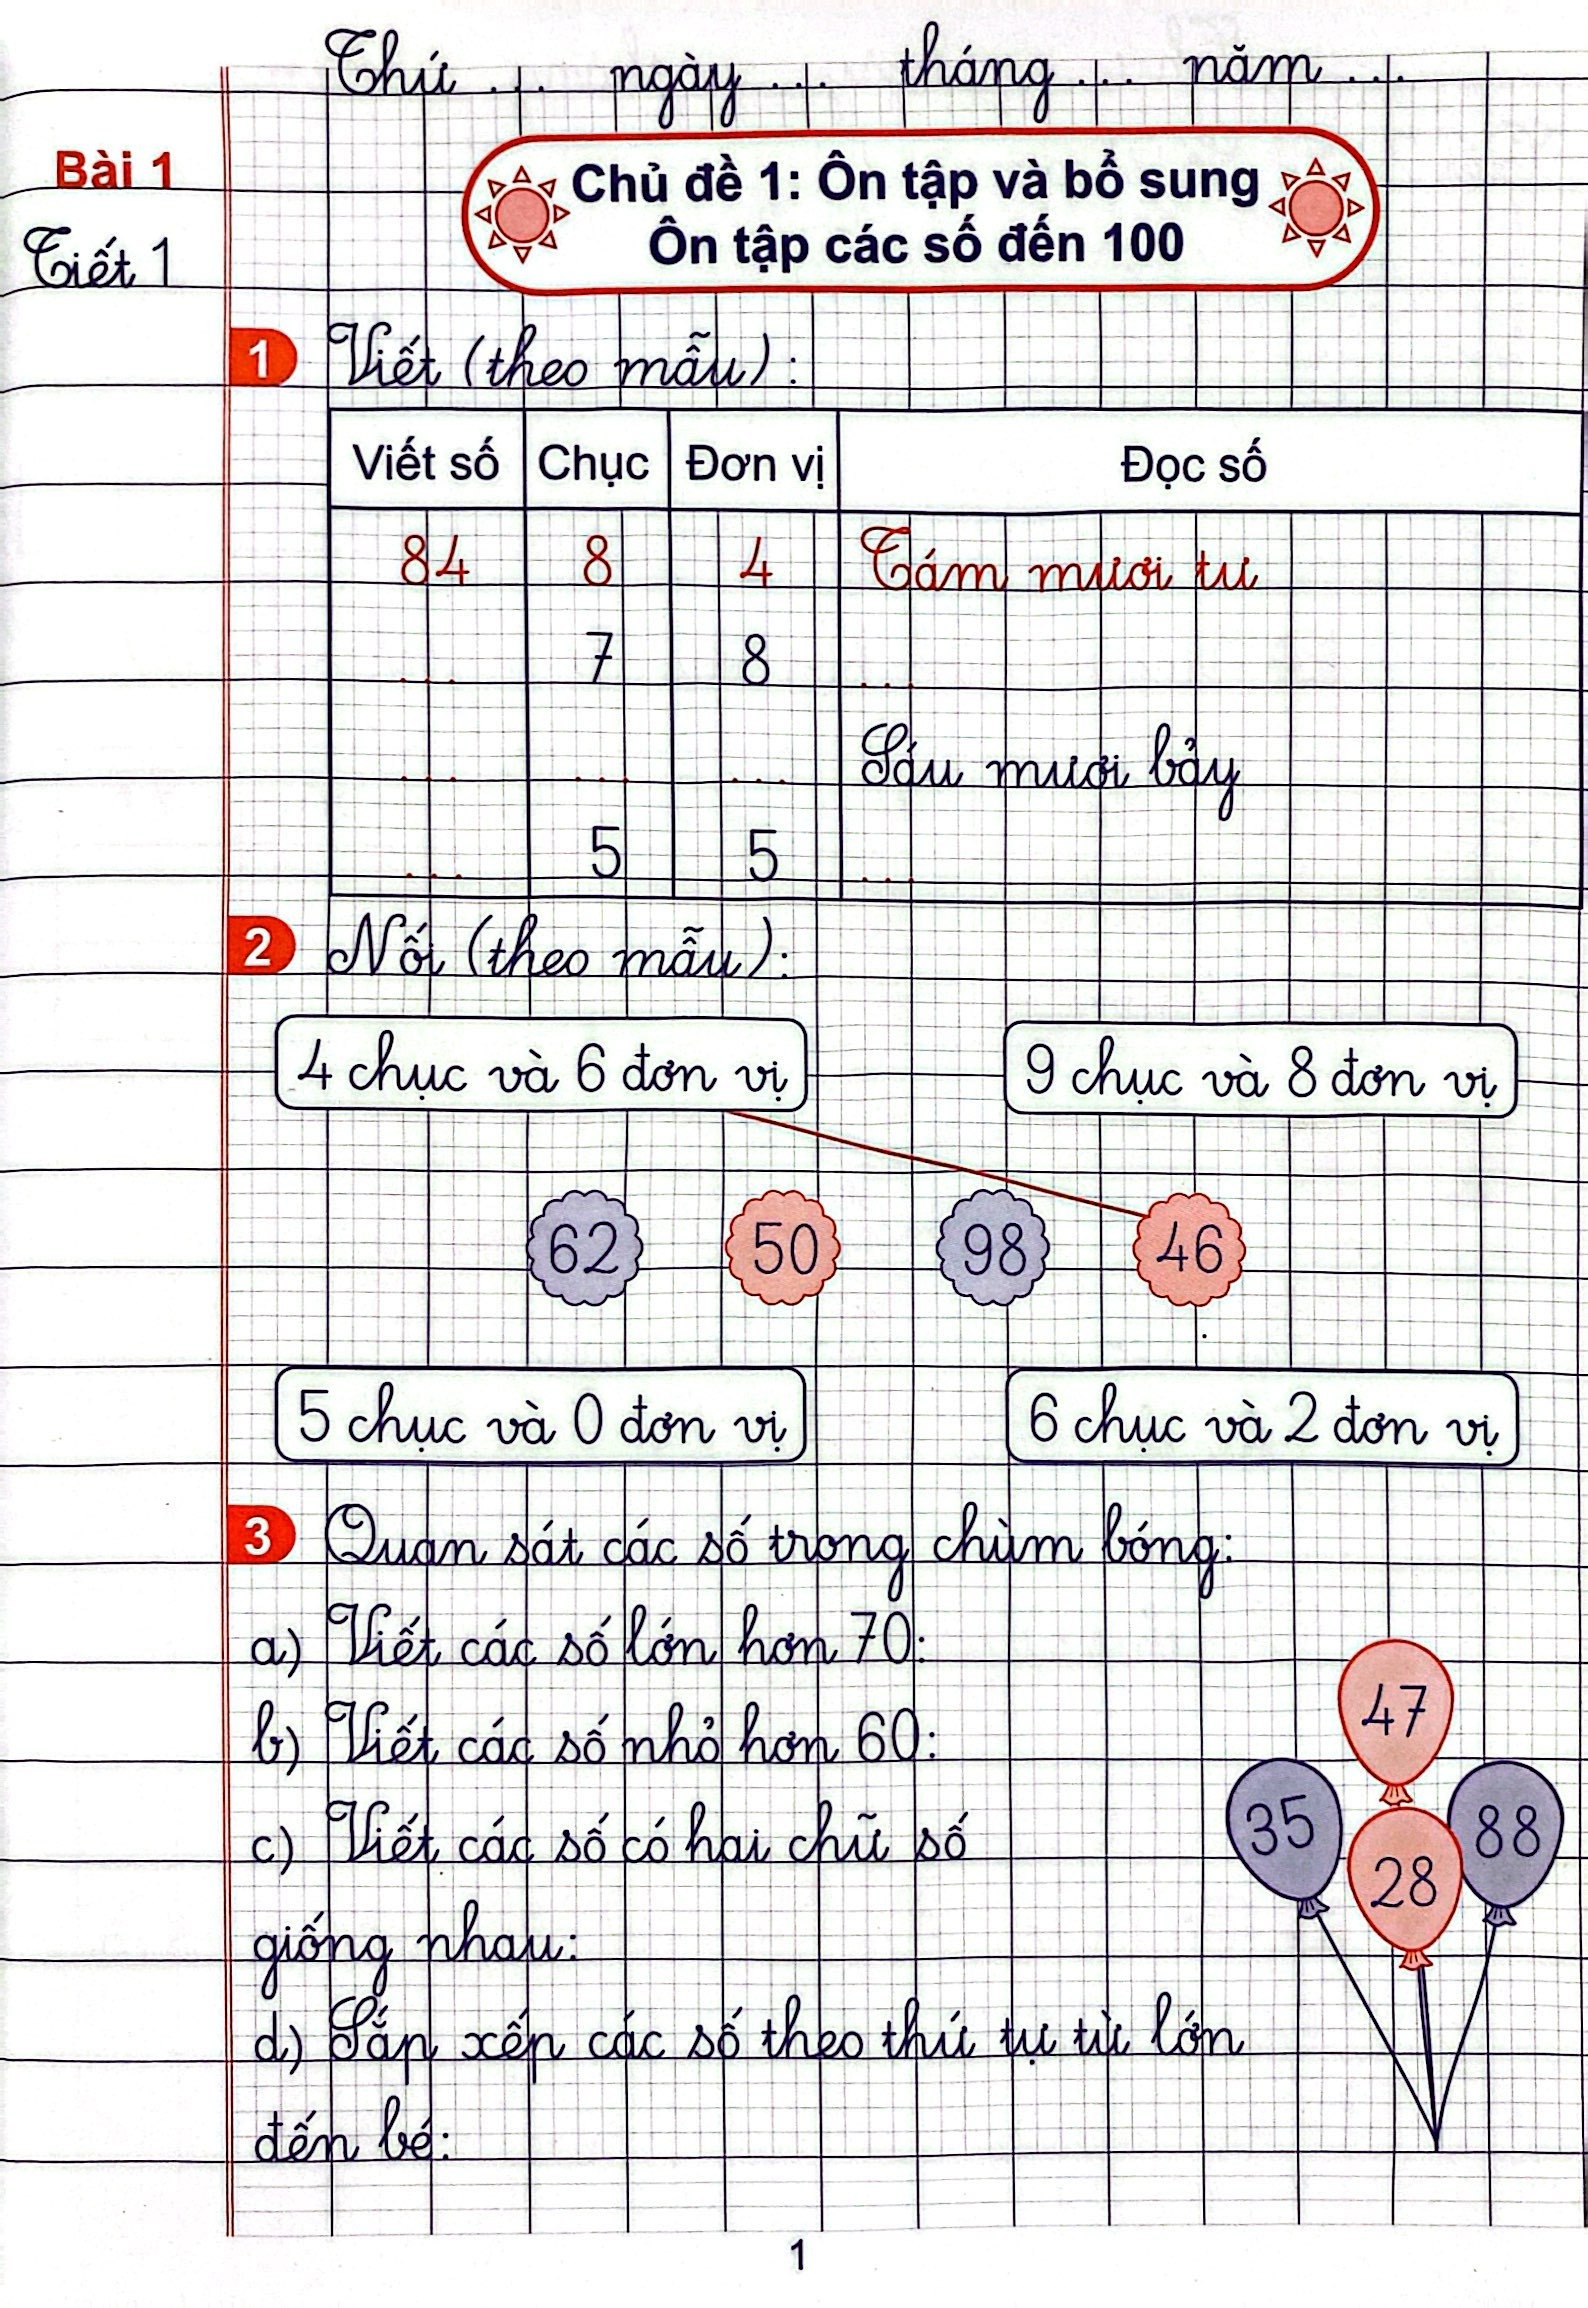 Thứ ... ngày ... tháng ... năm ...
Bài 1
Chủ đề 1: Ôn tập và bổ sung
Ôn tập các số đến 100
Tiết 1
1 Viết (theo mẫu):
Viết số Chục Đơn vị Đọc số
84 8 4 Tám mươi tư
... 7 8 ...
... ... ... Sáu mươi bảy
... 5 5 ...
2 Nối (theo mẫu):
4 chục và 6 đơn vị 9 chục và 8 đơn vị
62 50 98 46
5 chục và 0 đơn vị 6 chục và 2 đơn vị
3 Quan sát các số trong chùm bóng:
a) Viết các số lớn hơn 70:
b) Viết các số nhỏ hơn 60:
c) Viết các số có hai chữ số
giống nhau:
d) Sắp xếp các số theo thứ tự từ lớn
đến bé:
47
35 28 88
1